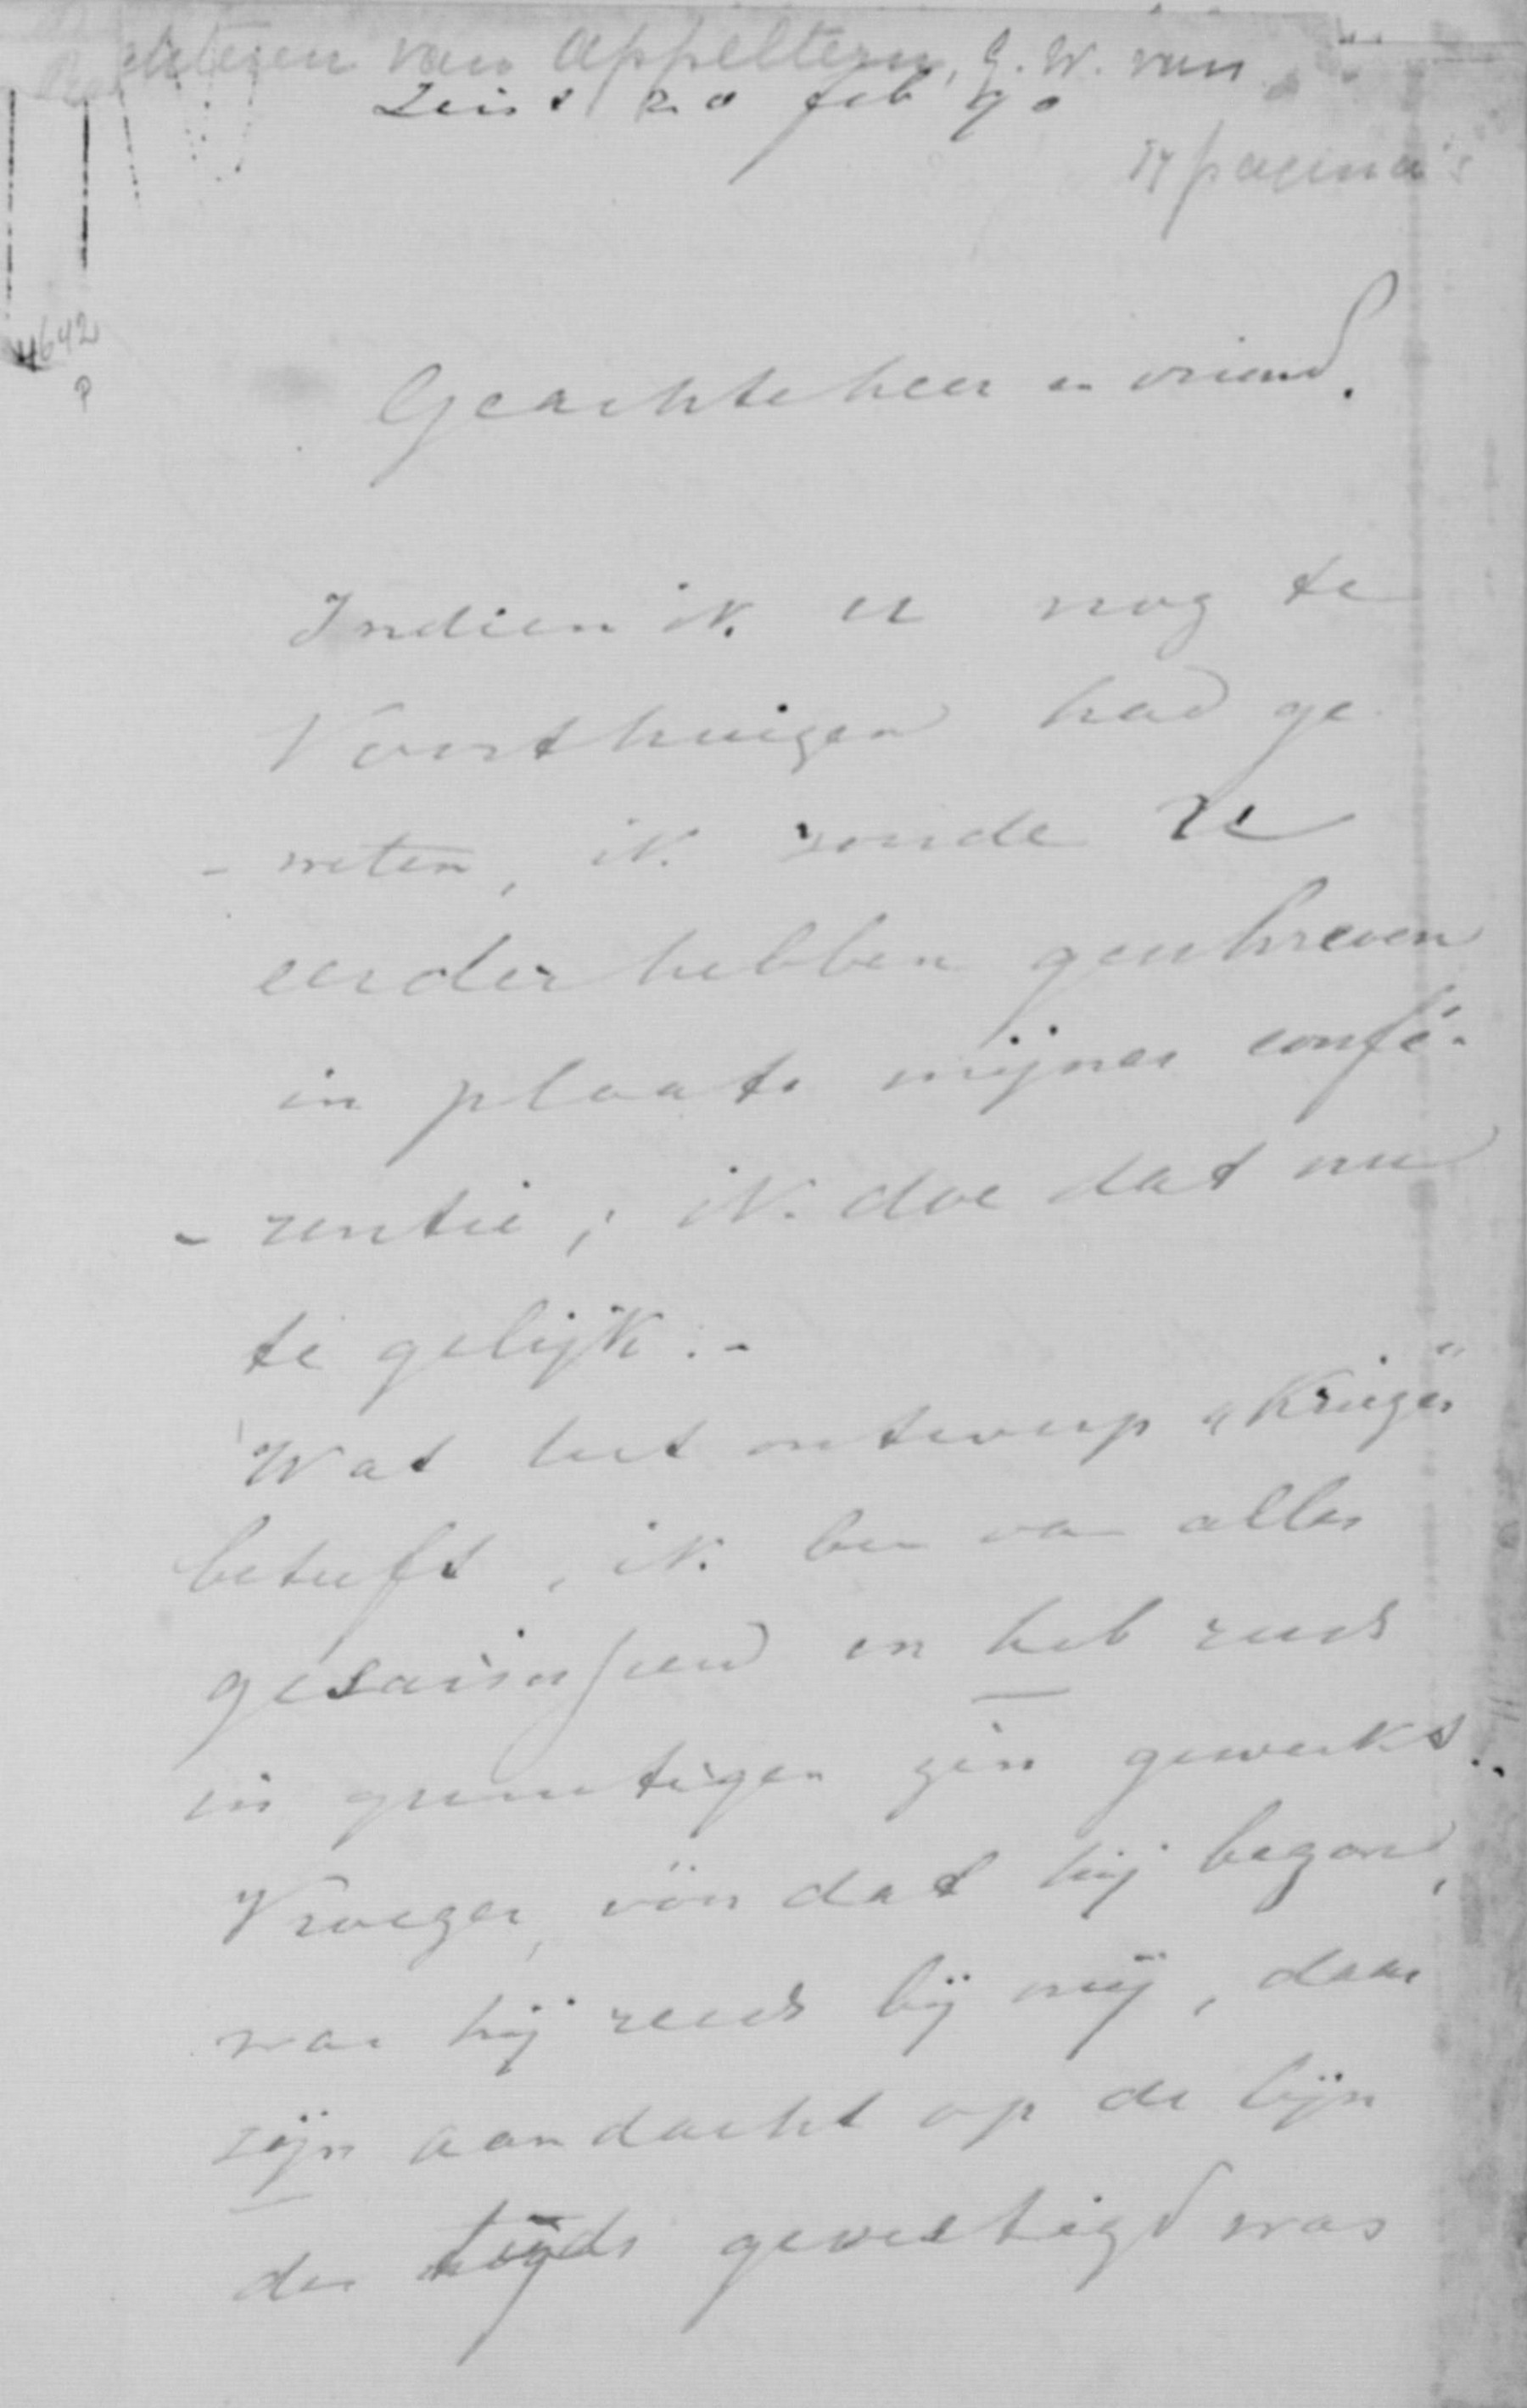 van Appeltern, G. W. van
Zeist 20 feb 90
pagina's
4642
?
Geachte heer en vriend.
Indien ik u nog te
Voorthuizen had ge
- weten, ik zoude U
eerder hebben geschreven
in plaats mijner confé-
- rentie; ik doe dat nu
te gelijk. -
Wat het ontwerp "Krüger"
betreft, ik ben van alles
en heb reeds
in gunstigen zin gewerkt..
Vroeger, vóór dat hij begon,
was hij reeds bij mij, daar
zijn aandacht op de lijn
des tijds gevestigd was